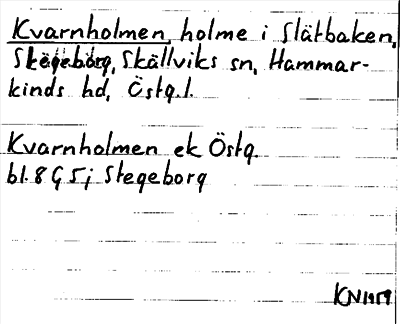 Kvarnholmen, holme i Slätbaken,
Stegeborg, Skällviks sn, Hammar-
kinds hd, Östg.l.
Kvarnholmen ek Östg.
bl. 8 G 5 j Stegeborg
KN 1959